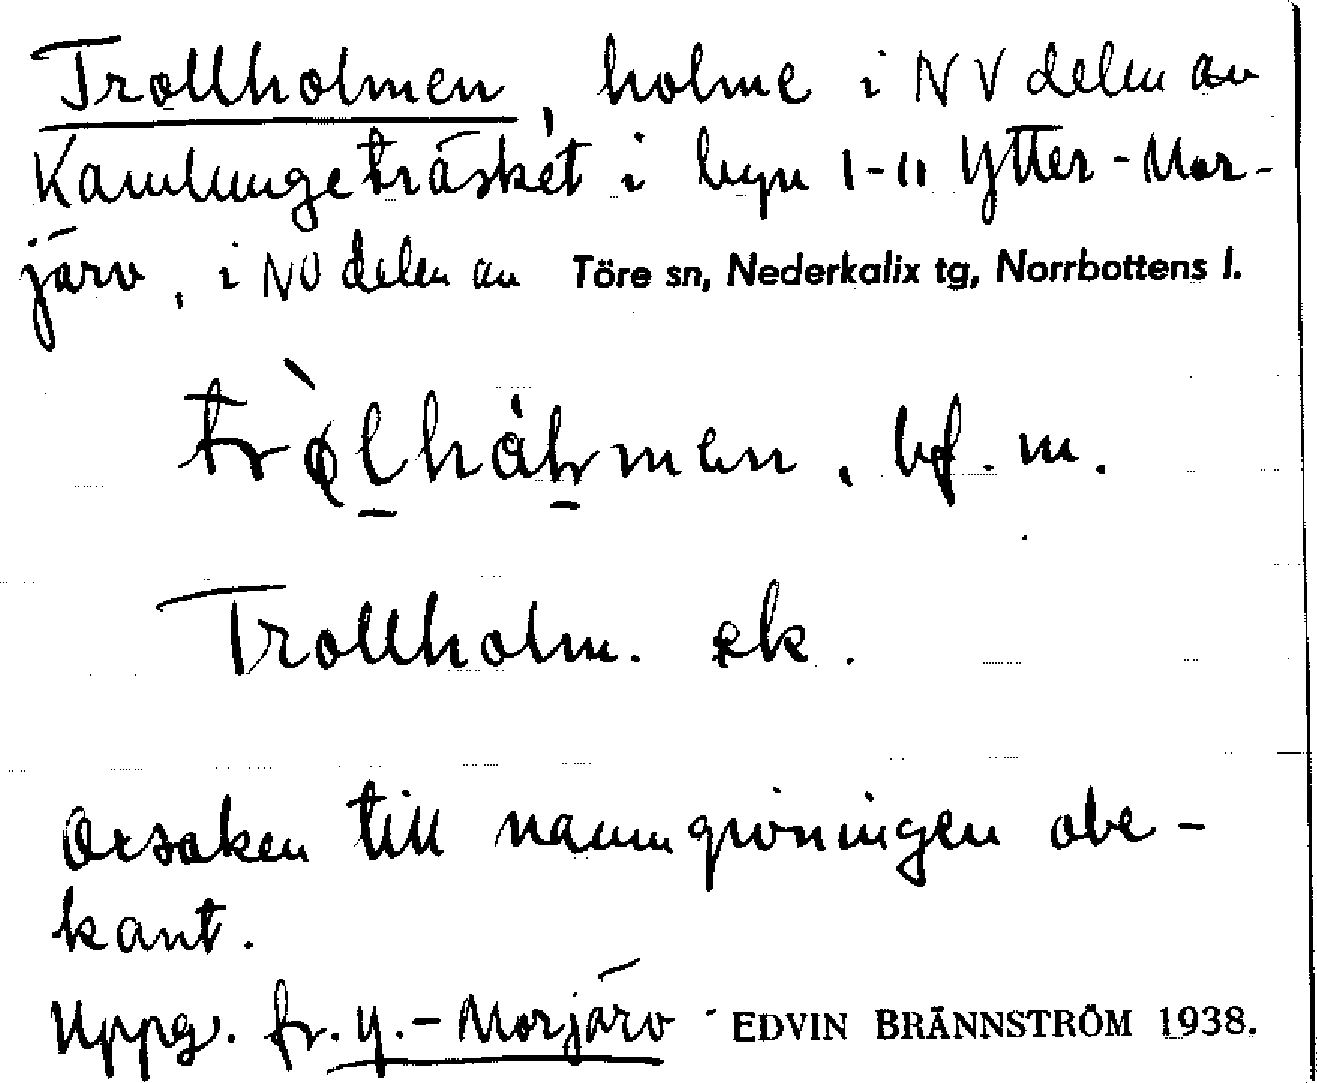 Trollholmen, holme i NV delen av
Kamlungeträsket i byn 1-11 Ytter-Mor-
järv, i NV delen av Töre sn, Nederkalix tg, Norrbottens l.
bf. m.
Trollholm. ek.
Orsaken till namngivningen obe-
kant.
Uppg. fr. Y.-Morjärv EDVIN BRÄNNSTRÖM 1938.